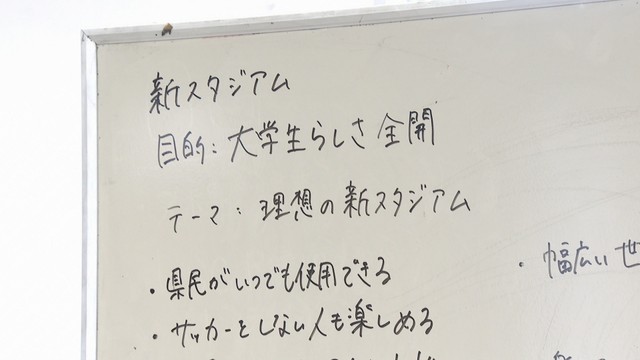 新スタジアム
目的：大学生らしさ全開
テーマ：理想の新スタジアム
・県民がいつでも使用できる
・幅広い世
・サッカーをしない人も楽しめる